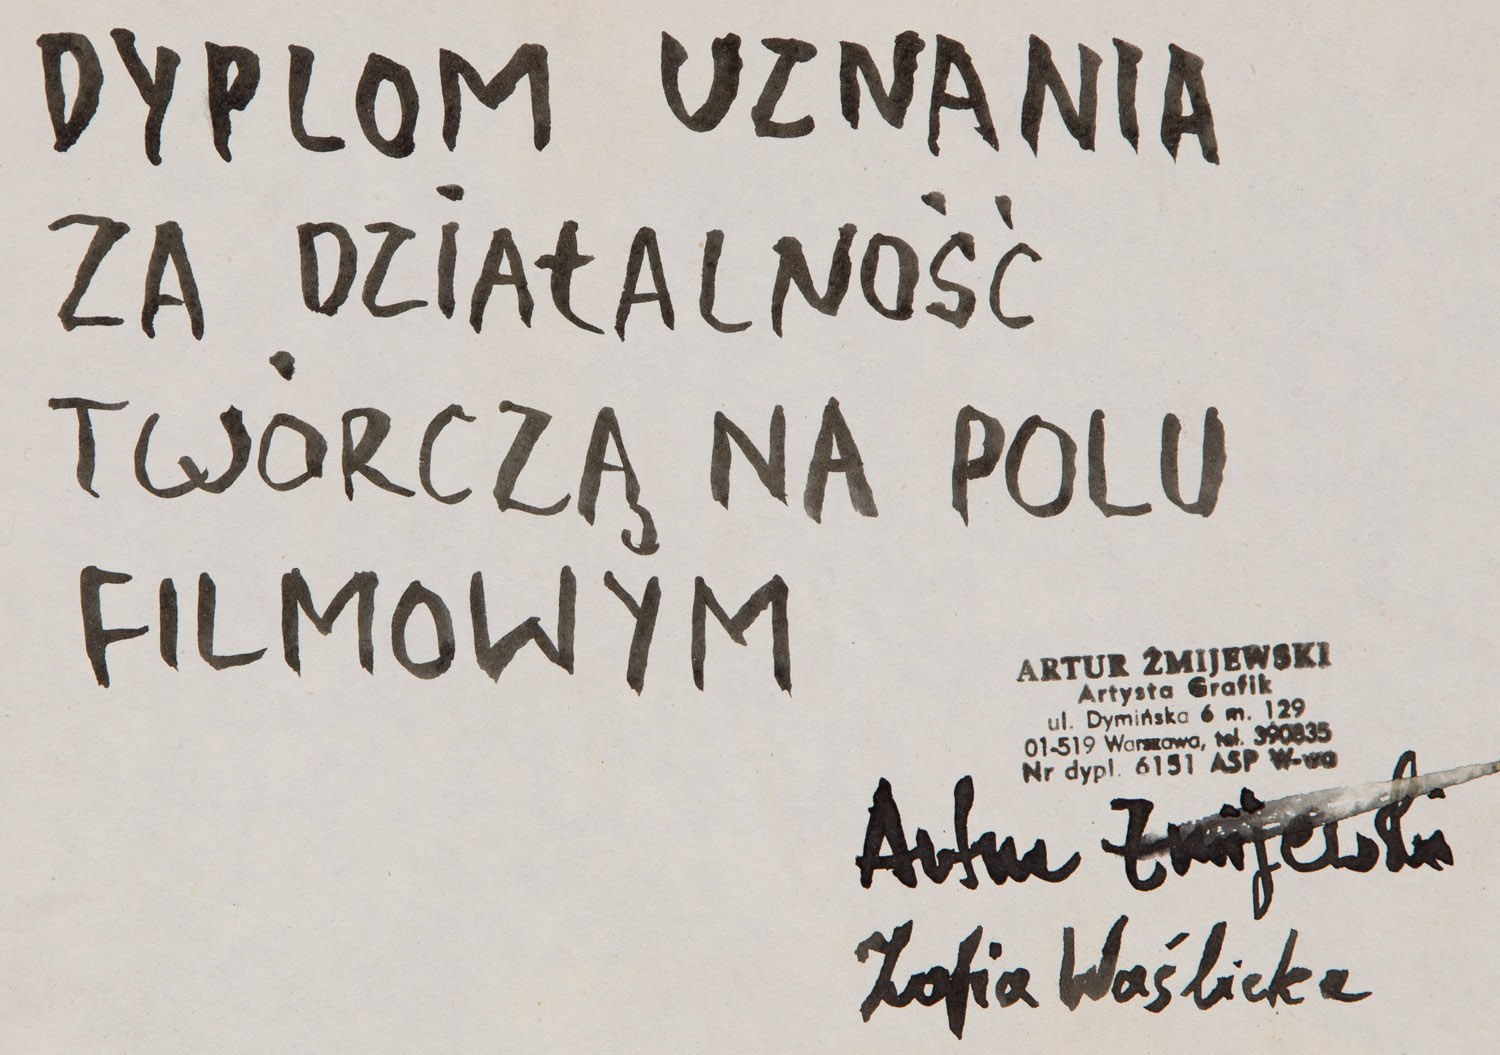 DYPLOM UZNANIA
ZA DZIAŁALNOŚĆ
TWÓRCZĄ NA POLU
FILMOWYM
ARTUR ŻMIJEWSKI
Artysta Grafik
ul. Dymińska 6 m. 129
01-519 Warszawa, tel. 390835
Nr dypl. 6151 ASP W-wa
Artur Żmijewski
Zofia Waślicka